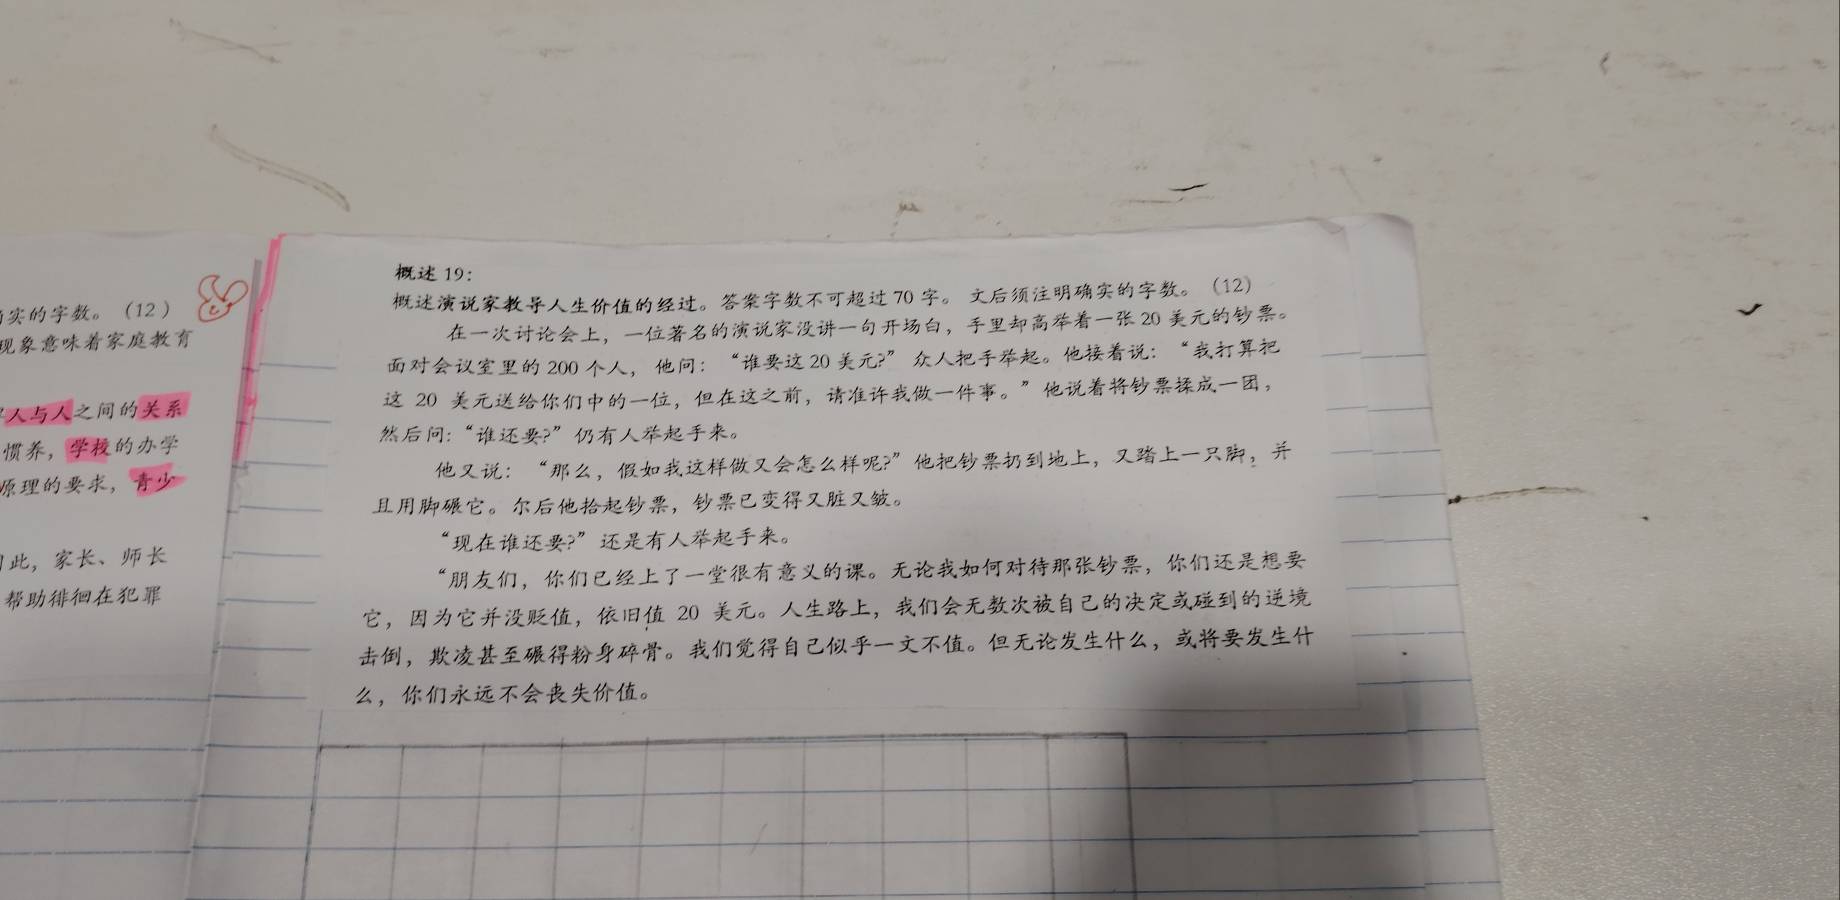 实的字数。（12）
现象意味着家庭教育
人与人之间的关系
惯养，学校的办学
原理的要求，青少
此，家长、师长
帮助徘徊在犯罪
概述 19：
概述演说家教导人生价值的经过。答案字数不可超过 70 字。 文后须注明确实的字数。（12）
在一次讨论会上，一位著名的演说家没讲一句开场白，手里却高举着一张 20 美元的钞票。
面对会议室里的 200 个人，他问：“谁要这 20 美元?” 众人把手举起。他接着说：“我打算把
这 20 美元送给你们中的一位，但在这之前，请准许我做一件事。”他说着将钞票揉成一团，
然后问：“谁还要?”仍有人举起手来。
他又说：“那么，假如我这样做又会怎么样呢?”他把钞票扔到地上，又踏上一只脚，并
且用脚碾它。尔后他拾起钞票，钞票已变得又脏又皱。
“现在谁还要?” 还是有人举起手来。
“朋友们，你们已经上了一堂很有意义的课。无论我如何对待那张钞票，你们还是想要
它，因为它并没贬值，依旧值 20 美元。人生路上，我们会无数次被自己的决定或碰到的逆境
击倒，欺凌甚至碾得粉身碎骨。我们觉得自己似乎一文不值。但无论发生什么，或将要发生什
么，你们永远不会丧失价值。